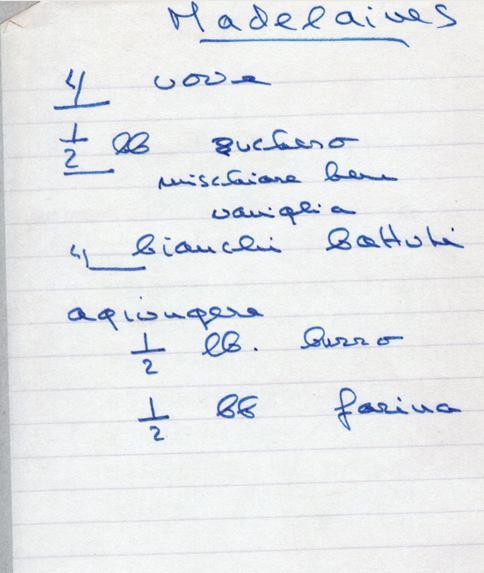 Madelaines
4 uova
1/2 lb zucchero
mischiare bene
vaniglia
4 bianchi battuti
agiongere
1/2 lb. burro
1/2 lb farina